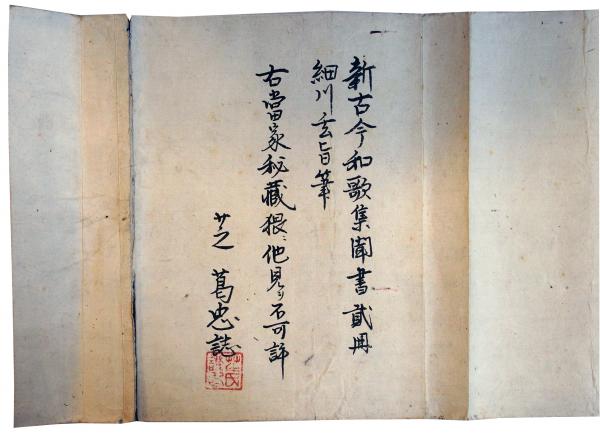 新古今和歌集聞書貳冊
細川玄旨筆
右當家秘藏猥ニ他見ヲ不可許
芝 葛忠誌